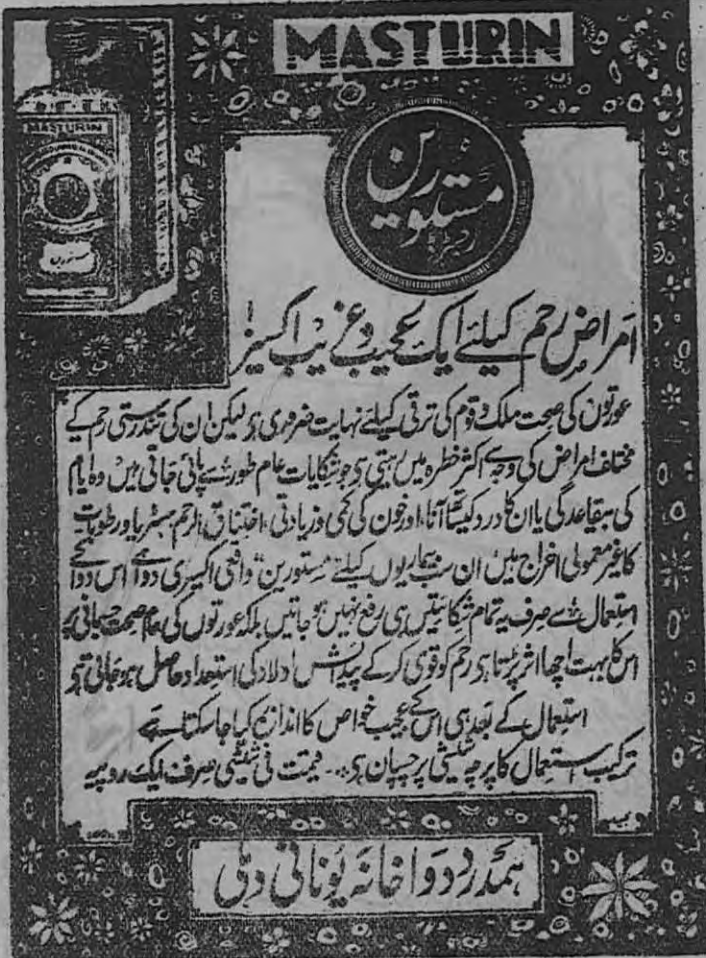 MASTURIN
MASTURIN
مستورین
مستورین
رجسٹرڈ
امراضِ رحم کیلئے ایک عجیب و غریب اکسیر!
عورتوں کی صحت ملک و قوم کی ترقی کیلئے نہایت ضروری ہو لیکن ان کی تندرستی رحم کے
مختلف امراض کی وجہ سے اکثر خطرہ میں رہتی ہو جو شکایات عام طور سے پائی جاتی ہیں وہ ایام
کی بیقاعدگی یا ان کا درد کیساتھ آنا، اور خون کی کمی و زیادتی، اختناق الرحم ہسٹریا اور طوبات
کا غیر معمولی اخراج ہیں ان سب بیماریوں کیلئے "مستورین" واقعی اکسیری دوا ہے اس دوا کے
استعمال سے صرف یہ تمام شکائتیں ہی رفع نہیں ہو جاتیں بلکہ عورتوں کی عام صحت جسمانی پر
اس کا بہت اچھا اثر پڑتا ہو رحم کو قوی کر کے پیدائش اولاد کی استعداد حاصل ہو جاتی ہو
استعمال کے بعد ہی اس کے عجیب خواص کا اندازہ کیا جا سکتا ہے
ترکیب استعمال کا پرچہ شیشی پر چسپان ہو... قیمت فی شیشی صرف ایک روپیہ
ہمدرد دواخانہ یونانی دہلی